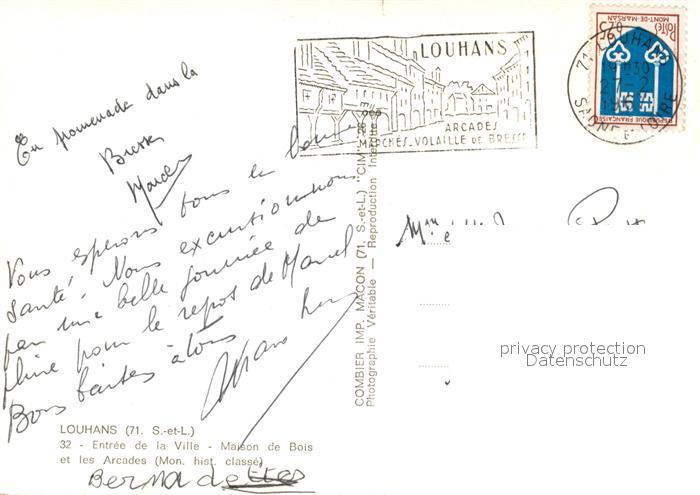 En promenade dans la
Bresse
Marcel
Vous espérons tous en bonne
santé. Nous excursionnons
par une belle journée de
pluie pour le repos de Marcel
Bons baisers à tous
BERNAdettes
LOUHANS (71. S.-et-L.)
32 - Entrée de la Ville - Maison de Bois
et les Arcades (Mon. hist. classé)
COMBIER IMP. MACON (71. S.-et-L.) "CIM"
Photographie Véritable — Reproduction Interdite
LOUHANS
ARCADES
MARCHÉS-VOLAILLE DE BRESSE
71 LOUHANS
19H30
27-2
SAONE-ET-LOIRE
POSTES
MONT-DE-MARSAN
REPUBLIQUE FRANÇAISE
privacy protection
Datenschutz